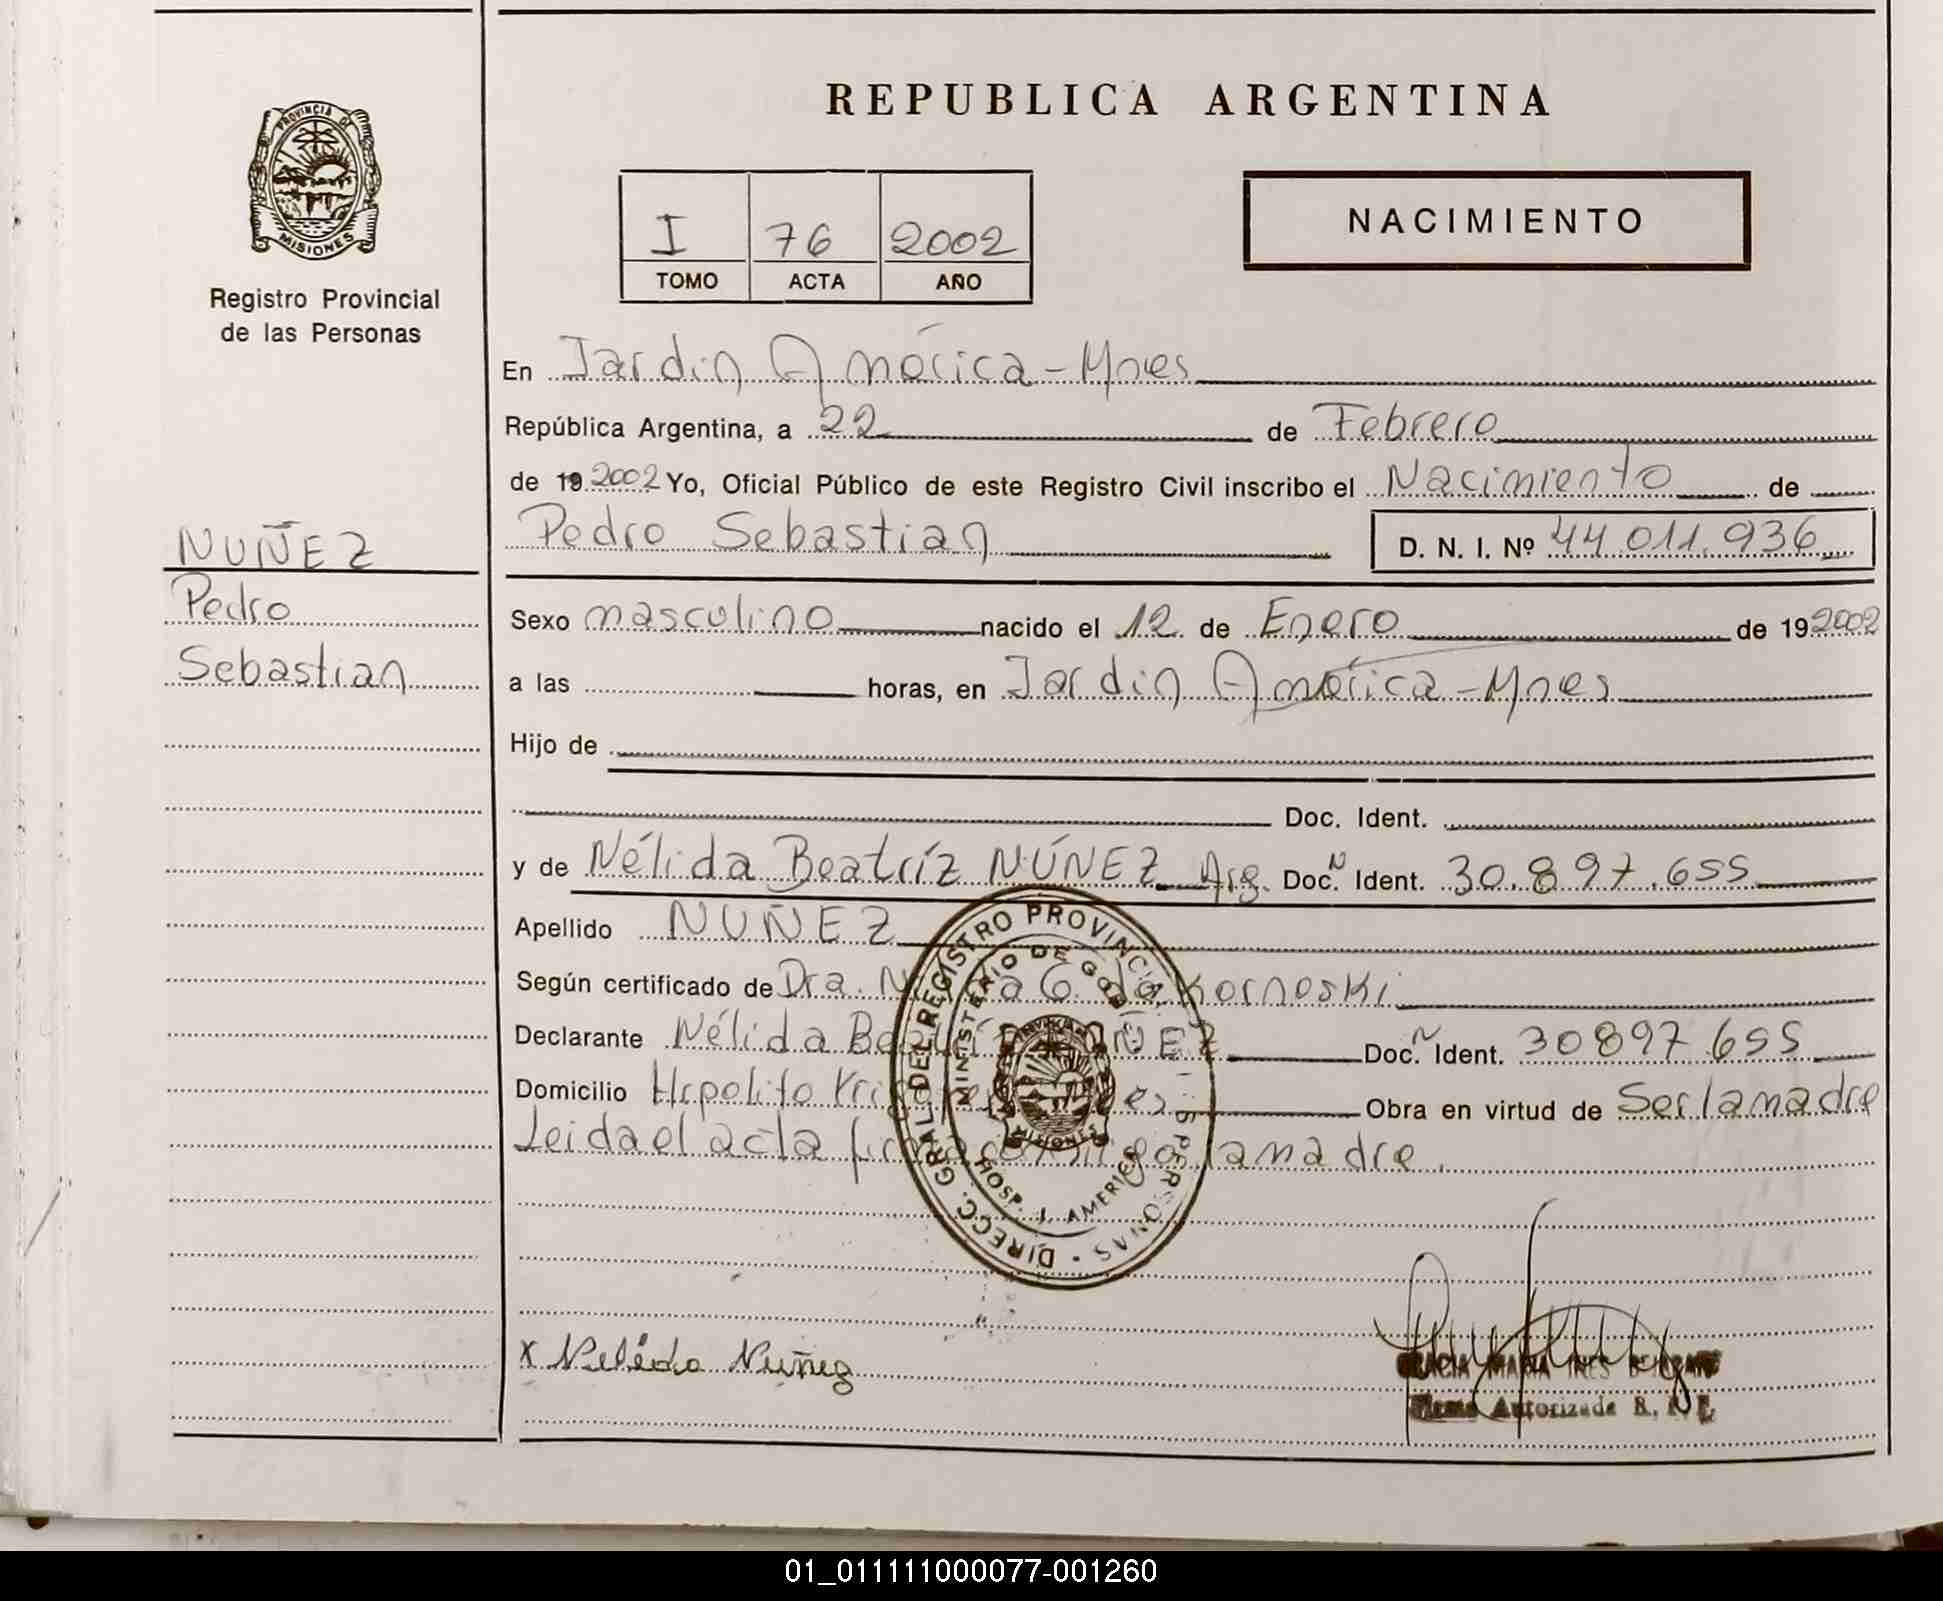 REPUBLICA ARGENTINA
PROVINCIA DE
MISIONES
Registro Provincial
de las Personas
I 76 2002
TOMO ACTA AÑO
NACIMIENTO
En Jardin América - Mnes
República Argentina, a 22 de Febrero
de 19 2002 Yo, Oficial Público de este Registro Civil inscribo el Nacimiento de
Pedro Sebastian D. N. I. Nº 44.011.936
NUÑEZ
Pedro
Sebastian
Sexo masculino nacido el 12 de Enero de 19 2002
a las horas, en Jardin América - Mnes
Hijo de
Doc. Ident.
y de Nélida Beatríz NÚÑEZ Arg. Doc. N Ident. 30.897.655
Apellido NUÑEZ
Según certificado de Dra. G. de Kornoski
Declarante Nélida Doc. N Ident. 30897.655
Domicilio Hipolito Obra en virtud de Ser la madre
Leida el acta la madre.
DIRECC. GRAL. DEL REGISTRO PROVINCIAL PERSONAS
MINISTERIO DE
HOSP. J. AMERICA
MISIONES
x Nelida Nuñez
GRACIA MARIA INES
Firma Autorizada R.
01_011111000077-001260